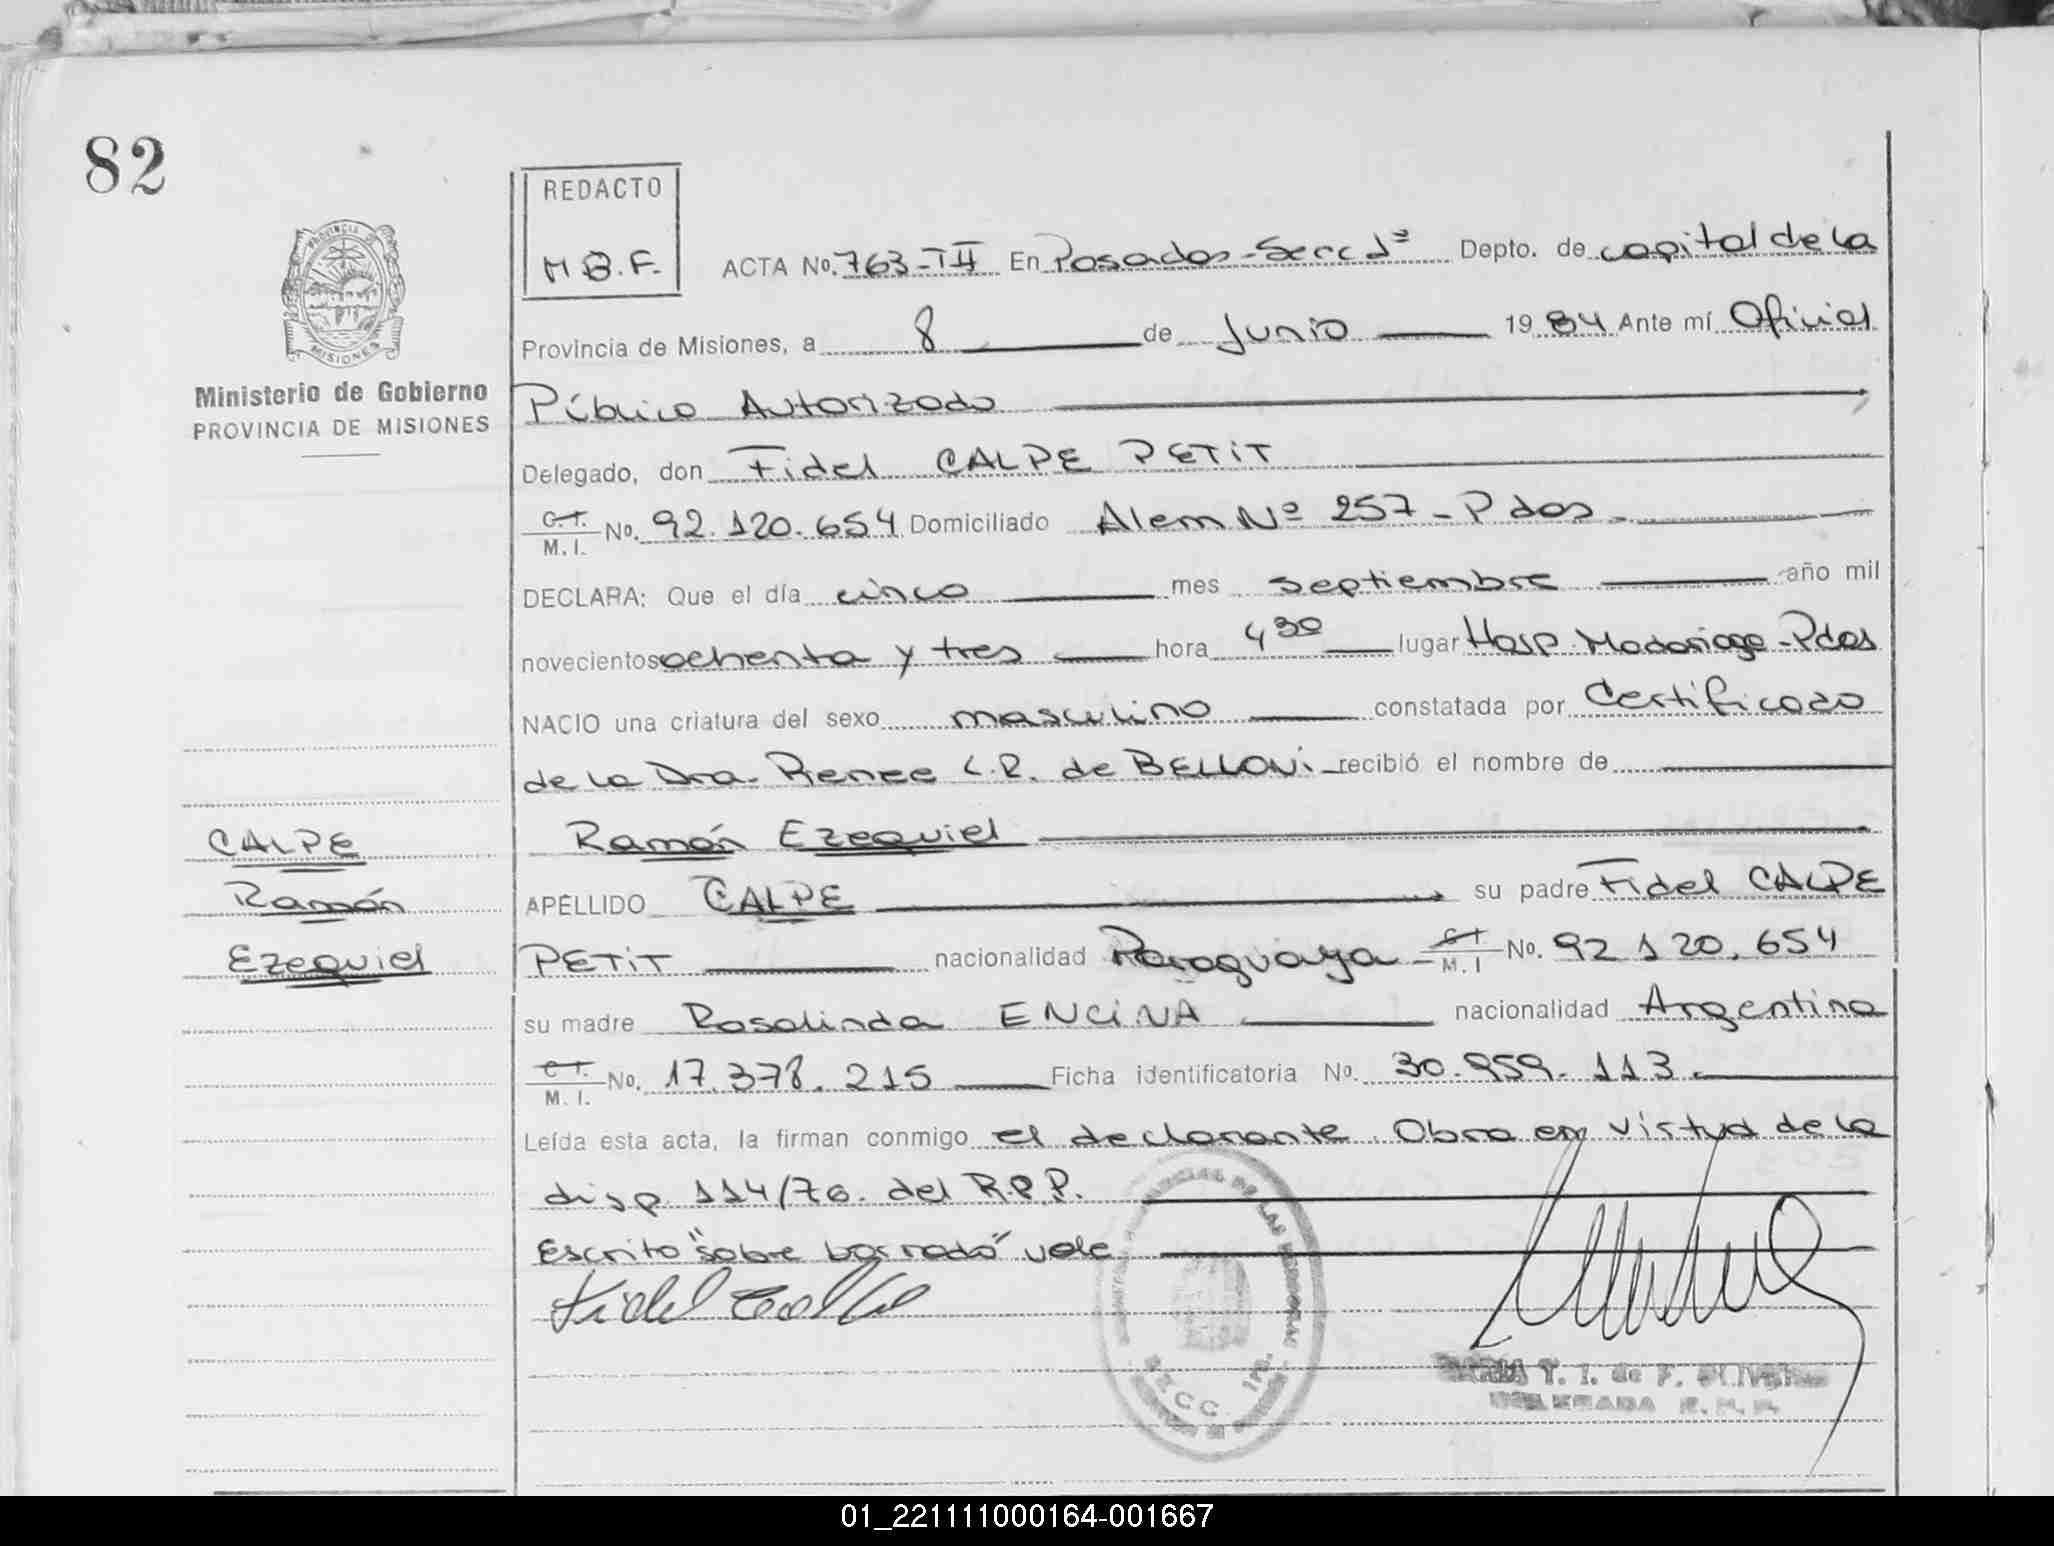 82
PROVINCIA DE
MISIONES
Ministerio de Gobierno
PROVINCIA DE MISIONES
REDACTO
M B. F.
ACTA No. 763-III En Posadas-Secc 1ª Depto. de capital de la
Provincia de Misiones, a 8 de Junio 19 84 Ante mí Oficial
Público Autorizado
Delegado, don Fidel CALPE PETiT
C.I. M.I. No. 92.120.654 Domiciliado Alem Nº 257 - Pdas.
DECLARA: Que el día cinco mes septiembre año mil
novecientos ochenta y tres hora 4 30 lugar Hosp. Madariaga - Pdas
NACIO una criatura del sexo masculino constatada por Certificado
de la Dra. Renee L.R. de BELLONi recibió el nombre de
Ramón Ezequiel
APELLIDO CALPE su padre Fidel CALPE
PETiT nacionalidad Paraguaya C.I. M.I No. 92 120.654
su madre Rosalinda ENCiNA nacionalidad Argentina
C.I. M.I. No. 17.378.215 Ficha identificatoria No. 30.959.113.
Leída esta acta, la firman conmigo el declarante Obra en virtud de la
disp 114/76. del R.P.P.
Escrito "sobre borrado" vale
CALPE
Ramón
Ezequiel
DE LAS PERSONAS
T. I. de F.
DELEGADA
01_221111000164-001667